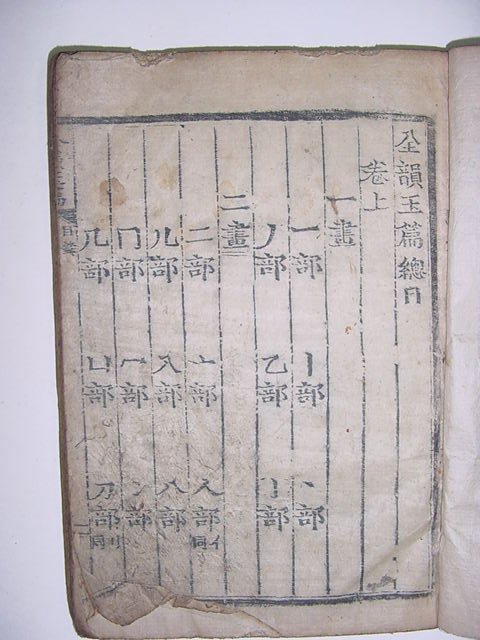 全韻玉篇總目
卷上
一畫
一部 丨部 丶部
丿部 乙部 亅部
二畫
二部 亠部 人部 亻同
儿部 入部 八部
冂部 冖部 冫部
几部 凵部 刀部 刂同